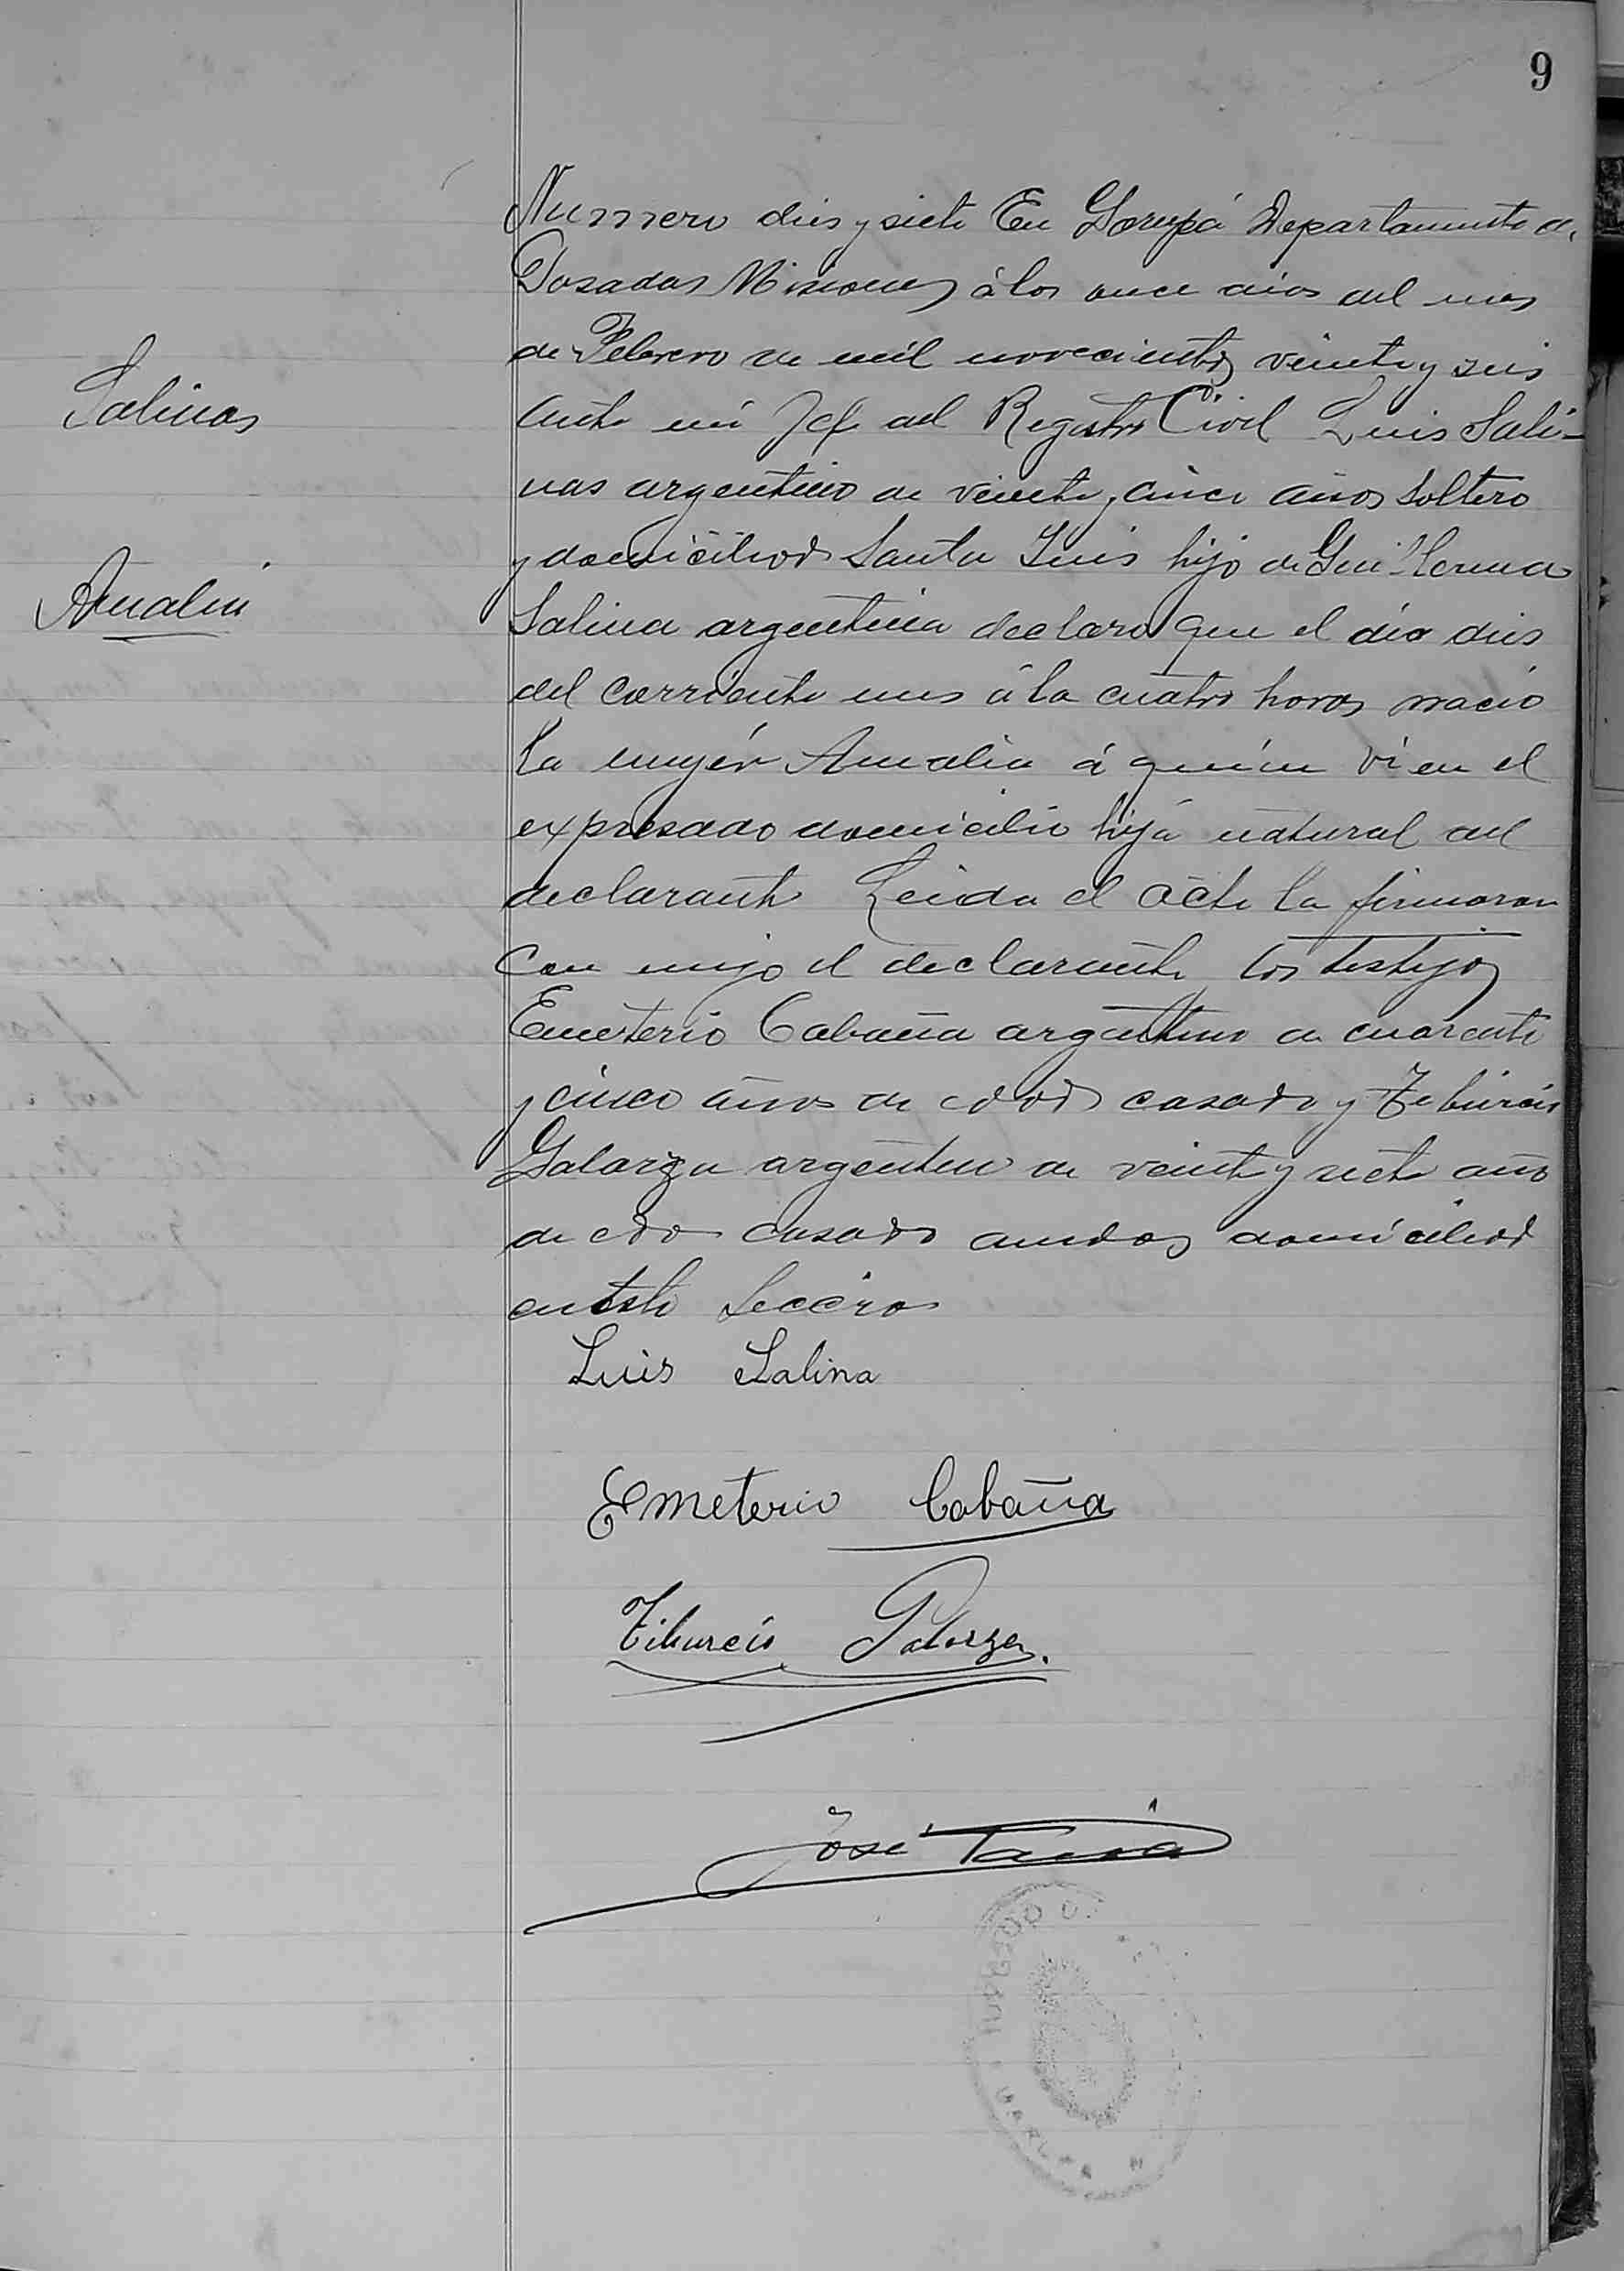 9
Numero dies y siete En Garupá Departamento de
Posadas Misiones á los once dias del mes
de Febrero de mil novecientos veinte y seis
Salinas
ante mi Jefe del Registro Civil Luis Sali-
nas argentino de veinte y cinco años soltero
y domiciliod Santa Ines hijo de Guillerma
Amalia
Salina argentina declaro que el dia dies
del corriente mes á la cuatro horas nacio
la mujér Amalia á quien vi en el
expresado domicilio hija natural del
declarante Leida el acta la firmaron
con migo el declarante los testigos
Emeterio Cabaña argentino de cuarenta
y cinco años de edad casado y Tiburcio
Galarza argentino de veinte y siete año
de edad casado ambos domiciliod
en esta Seccion
Luis Salina
Emeterio Cabaña
Tiburcio Galarza.
José
JUZGADO DE